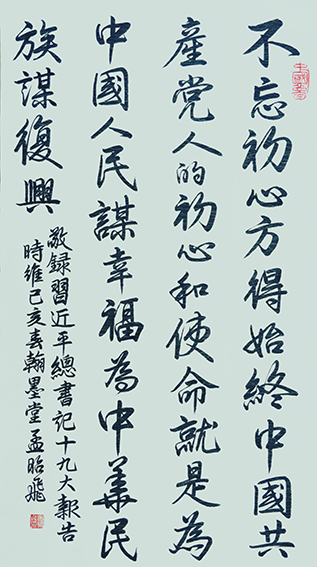 不忘初心方得始終中國共
産党人的初心和使命就是為
中國人民謀幸福為中華民
族謀復興
敬録習近平總書記十九大報告
時維己亥春翰墨堂孟昭飛